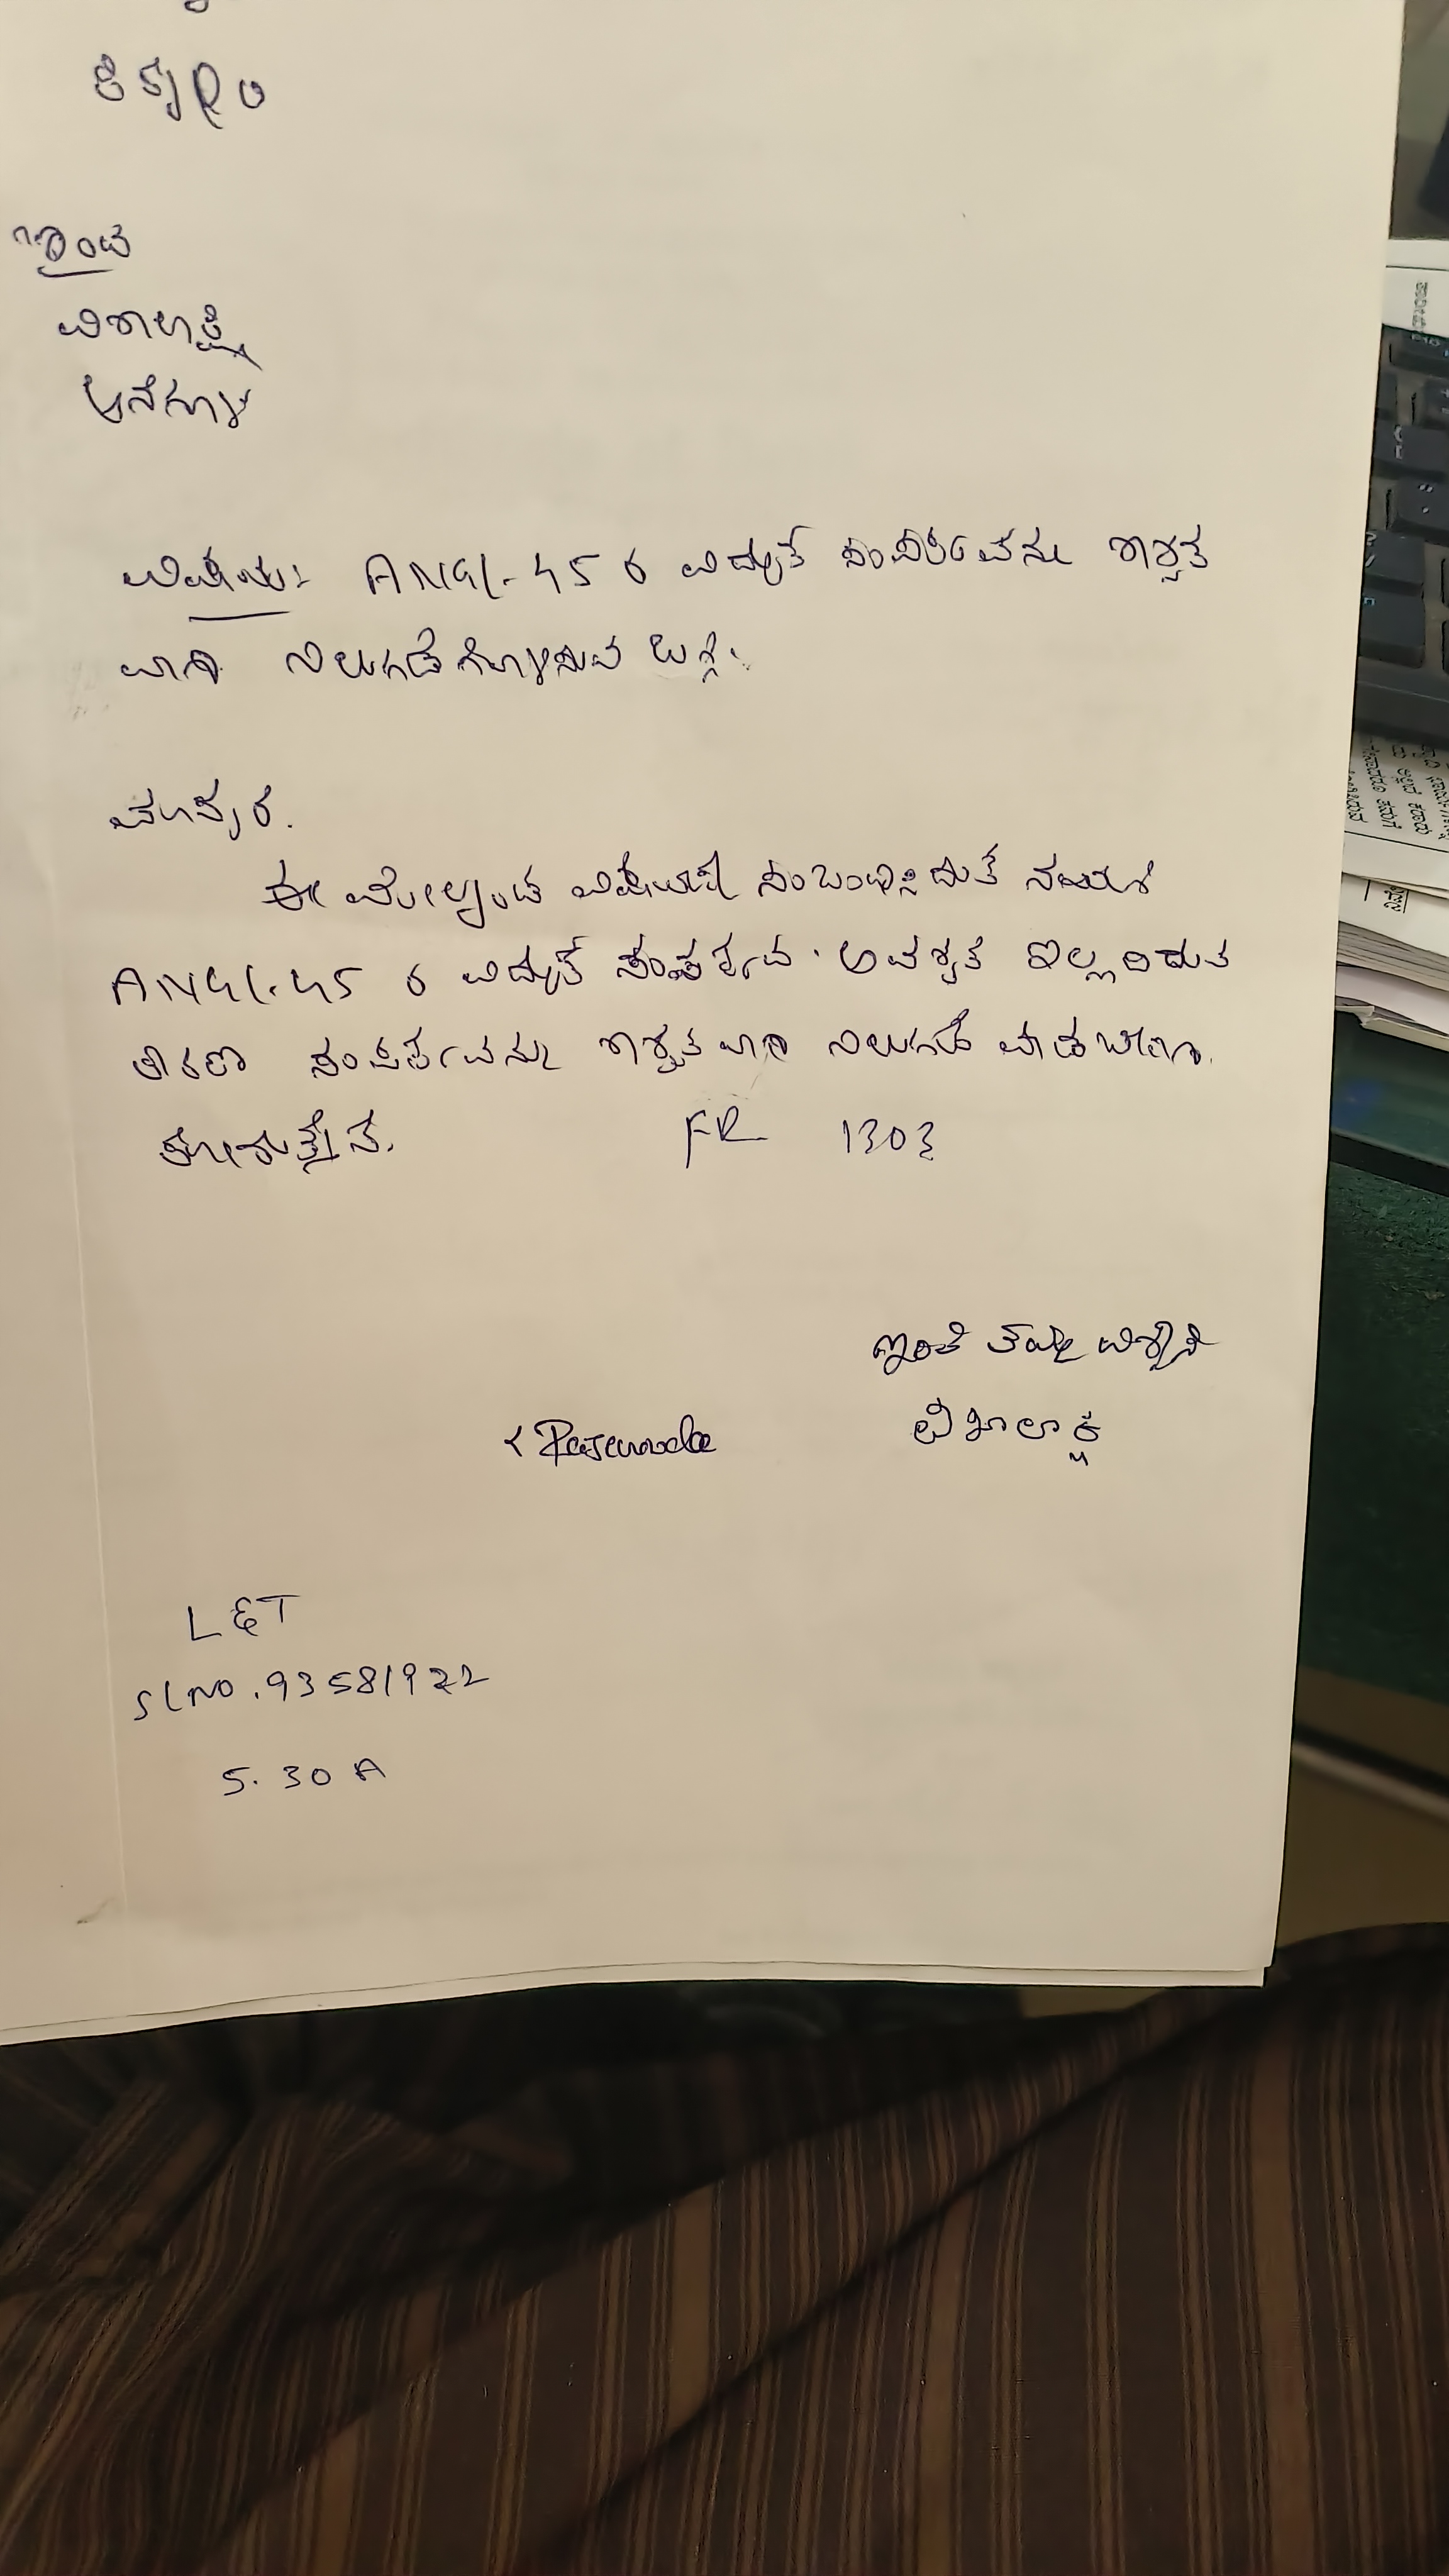 ಇಂದ
ವಿಶಾಲಾಕ್ಷಿ
ಆನೆಗೊಳ
ವಿಷಯ: ANGL-45 ರ ವಿದ್ಯುತ್ ಸಂಪರ್ಕವನ್ನು ಶಾಶ್ವತ
ವಾಗಿ ನಿಲುಗಡೆಗೊಳಿಸುವ ಬಗ್ಗೆ.
ಮಾನ್ಯರೆ.
ಈ ಮೇಲ್ಕಂಡ ವಿಷಯಕ್ಕೆ ಸಂಬಂಧಿಸಿದಂತೆ ನಮ್ಮ
ANGL-45 ರ ವಿದ್ಯುತ್ ಸಂಪರ್ಕವು ಅವಶ್ಯಕತೆ ಇಲ್ಲದಿರುವ
ಕಾರಣ ಸಂಪರ್ಕವನ್ನು ಶಾಶ್ವತವಾಗಿ ನಿಲುಗಡೆ ಮಾಡಬೇಕಾಗಿ
ಕೋರುತ್ತೇನೆ. FR 1303
ಇಂತಿ ತಮ್ಮ ವಿಶ್ವಾಸಿ
ವಿಶಾಲಾಕ್ಷಿ
L&T
SLNO.93581922
5.30 A